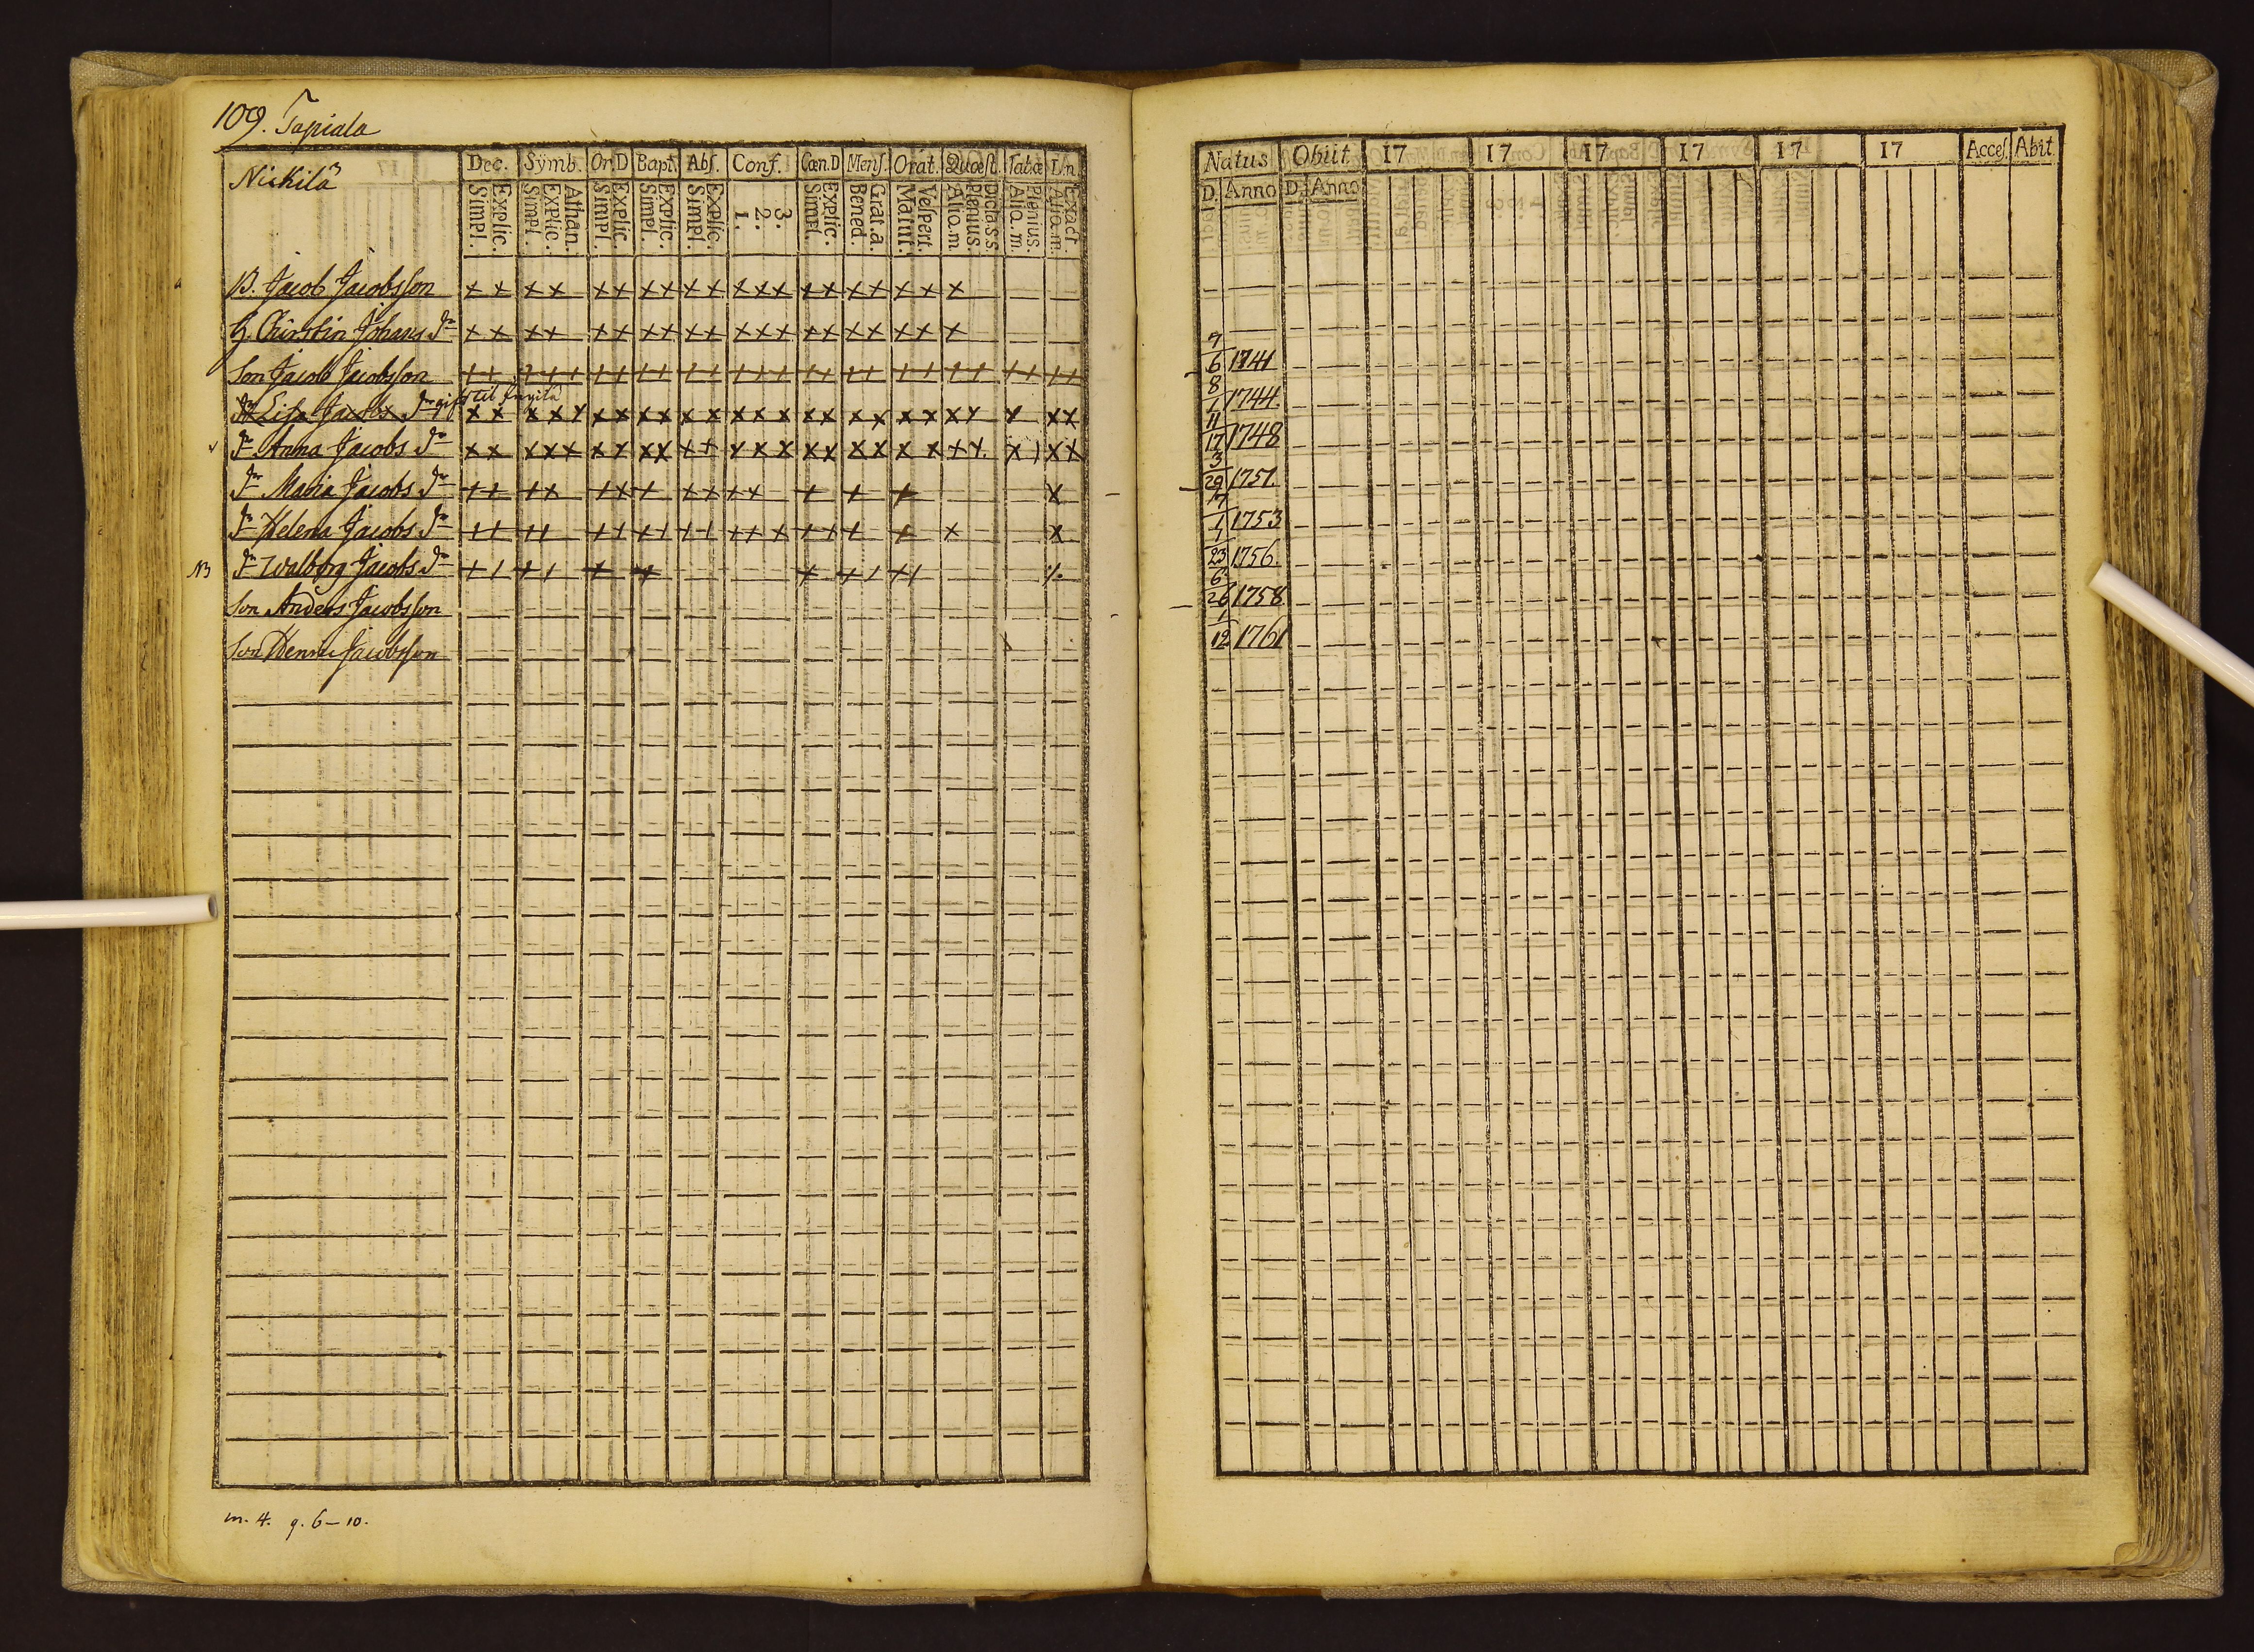 109. Tapiala
Nickilä
Dec. Symb. Or.D Bapt. Abs. Conf. Cœn.D Mens. Orat. Quœst. Tabæ L.n.
Explic. Simpl. Athan. Explic. Simpl. Explic Simpl. Explic. Simpl. Explic. Simpl. 3. 2. 1. Explic. Simpl. Grat.a. Bened. Vespert. Matut. Dicta.s.s. Plenius. Aliq.m. Plenius. Aliq.m. Exact. Aliq.m.
B. Jacob Jacobsson x x x x x x x x x x x x x x x x x x x x
H. Christin Johans dr x x x x x x x x x x x x x x x x x x x x
Son Jacob Jacobsson
dr Lisa Jacobs dr gift til
dr Anna Jacobs dr
dr Maria Jacobs dr
dr Helena Jacobs dr
NB dr Walborg Jacobs dr
Son Anders Jacobsson
Son Henric Jacobsson
m. 4. q. 6–10.
Natus Obiit 17 17 17 17 17 17 Acces. Abit.
D. Anno D. Anno
9/6 1741
8/1 1744.
11/17 1748
3/29 1751.
7/1 1753
1/23 1756.
6/26 1758
1/12 1761